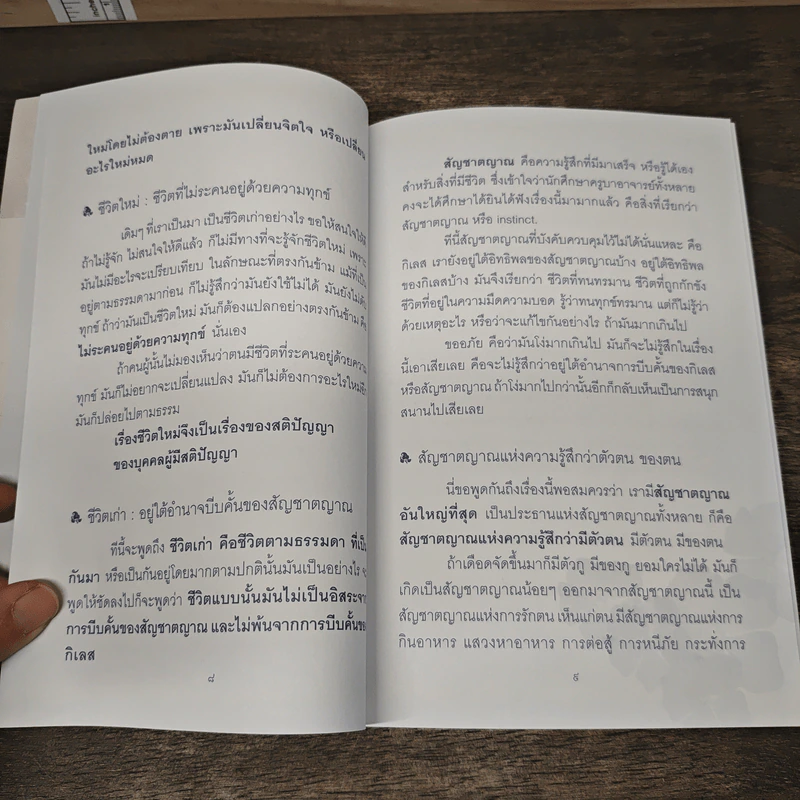 inches
ใหม่โดยไม่ต้องตาย เพราะมันเปลี่ยนจิตใจ หรือเปลี่ยน
อะไรใหม่หมด
ชีวิตใหม่ : ชีวิตที่ไม่ระคนอยู่ด้วยความทุกข์
เดิมๆ ที่เราเป็นมา เป็นชีวิตเก่าอย่างไร ขอให้สนใจให้ดี
ถ้าไม่รู้จัก ไม่สนใจให้ดีแล้ว ก็ไม่มีทางที่จะรู้จักชีวิตใหม่ เพราะ
มันไม่มีอะไรจะเปรียบเทียบ ในลักษณะที่ตรงกันข้าม แม้ที่เป็น
อยู่ตามธรรมดามาก่อน ก็ไม่รู้สึกว่ามันยังใช้ไม่ได้ มันยังไม่ดับ
ทุกข์ ถ้าว่ามันเป็นชีวิตใหม่ มันก็ต้องแปลกอย่างตรงกันข้าม คือ
ไม่ระคนอยู่ด้วยความทุกข์ นั่นเอง
ถ้าคนผู้นั้นไม่มองเห็นว่าตนมีชีวิตที่ระคนอยู่ด้วยความ
ทุกข์ มันก็ไม่อยากจะเปลี่ยนแปลง มันก็ไม่ต้องการอะไรใหม่อีก
มันก็ปล่อยไปตามธรรม
เรื่องชีวิตใหม่จึงเป็นเรื่องของสติปัญญา
ของบุคคลผู้มีสติปัญญา
ชีวิตเก่า : อยู่ใต้อำนาจบีบคั้นของสัญชาตญาณ
ทีนี้จะพูดถึง ชีวิตเก่า คือชีวิตตามธรรมดา ที่เป็น
กันมา หรือเป็นกันอยู่โดยมากตามปกตินั้นมันเป็นอย่างไร
พูดให้ชัดลงไปก็จะพูดว่า ชีวิตแบบนั้นมันไม่เป็นอิสระจาก
การบีบคั้นของสัญชาตญาณ และไม่พ้นจากการบีบคั้นของ
กิเลส
๘
สัญชาตญาณ คือความรู้สึกที่มีมาเสร็จ หรือรู้ได้เอง
สำหรับสิ่งที่มีชีวิต ซึ่งเข้าใจว่านักศึกษาครูบาอาจารย์ทั้งหลาย
คงจะได้ศึกษาได้ยินได้ฟังเรื่องนี้มามากแล้ว คือสิ่งที่เรียกว่า
สัญชาตญาณ หรือ instinct.
ทีนี้สัญชาตญาณที่บังคับควบคุมไว้ไม่ได้นั่นแหละ คือ
กิเลส เรายังอยู่ใต้อิทธิพลของสัญชาตญาณบ้าง อยู่ใต้อิทธิพล
ของกิเลสบ้าง มันจึงเรียกว่า ชีวิตที่ทนทรมาน ชีวิตที่ถูกกักขัง
ชีวิตที่อยู่ในความมืดความบอด รู้ว่าทนทุกข์ทรมาน แต่ก็ไม่รู้ว่า
ด้วยเหตุอะไร หรือว่าจะแก้ไขกันอย่างไร ถ้ามันมากเกินไป
ขออภัย คือว่ามันโง่มากเกินไป มันก็จะไม่รู้สึกในเรื่อง
นี้เอาเสียเลย คือจะไม่รู้สึกว่าอยู่ใต้อำนาจการบีบคั้นของกิเลส
หรือสัญชาตญาณ ถ้าโง่มากไปกว่านั้นอีกก็กลับเห็นเป็นการสนุก
สนานไปเสียเลย
สัญชาตญาณแห่งความรู้สึกว่าตัวตน ของตน
นี่ขอพูดกันถึงเรื่องนี้พอสมควรว่า เรามีสัญชาตญาณ
อันใหญ่ที่สุด เป็นประธานแห่งสัญชาตญาณทั้งหลาย ก็คือ
สัญชาตญาณแห่งความรู้สึกว่ามีตัวตน มีตัวตน มีของตน
ถ้าเดือดจัดขึ้นมาก็มีตัวกู มีของกู ยอมใครไม่ได้ มันก็
เกิดเป็นสัญชาตญาณน้อยๆ ออกมาจากสัญชาตญาณนี้ เป็น
สัญชาตญาณแห่งการรักตน เห็นแก่ตน มีสัญชาตญาณแห่งการ
กินอาหาร แสวงหาอาหาร การต่อสู้ การหนีภัย กระทั่งการ
๙